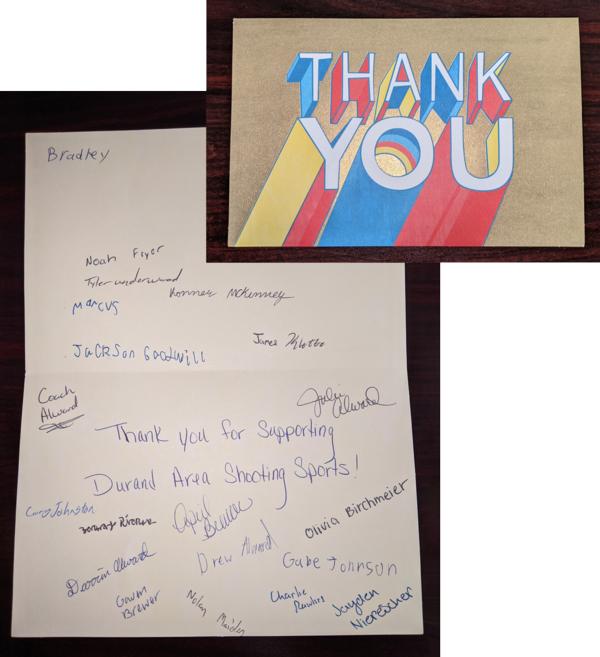 THANK
YOU
Bradley
Noah Fryer
Tyler underwood
McKinney
Marcus
JacKSon Goodwill
Coach
Alward
Julie
Alward
Thank you for Supporting
Durand Area Shooting Sports!
Johnston
April
Olivia Birchmeier
Drew Alward
Gabe Johnson
Devvin Alward
Gavin
Brewer
Nolan
Maiden
Charlie
Rawlins
Jayden
Nierescher